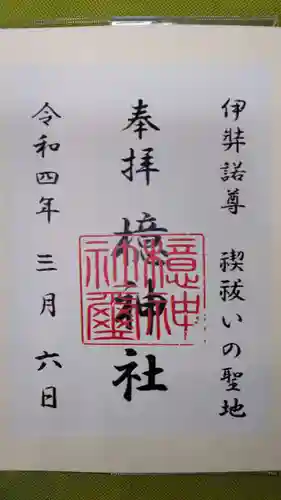 伊弉諾尊 禊祓いの聖地
奉拝 檍神社
令和四年 三月 六日